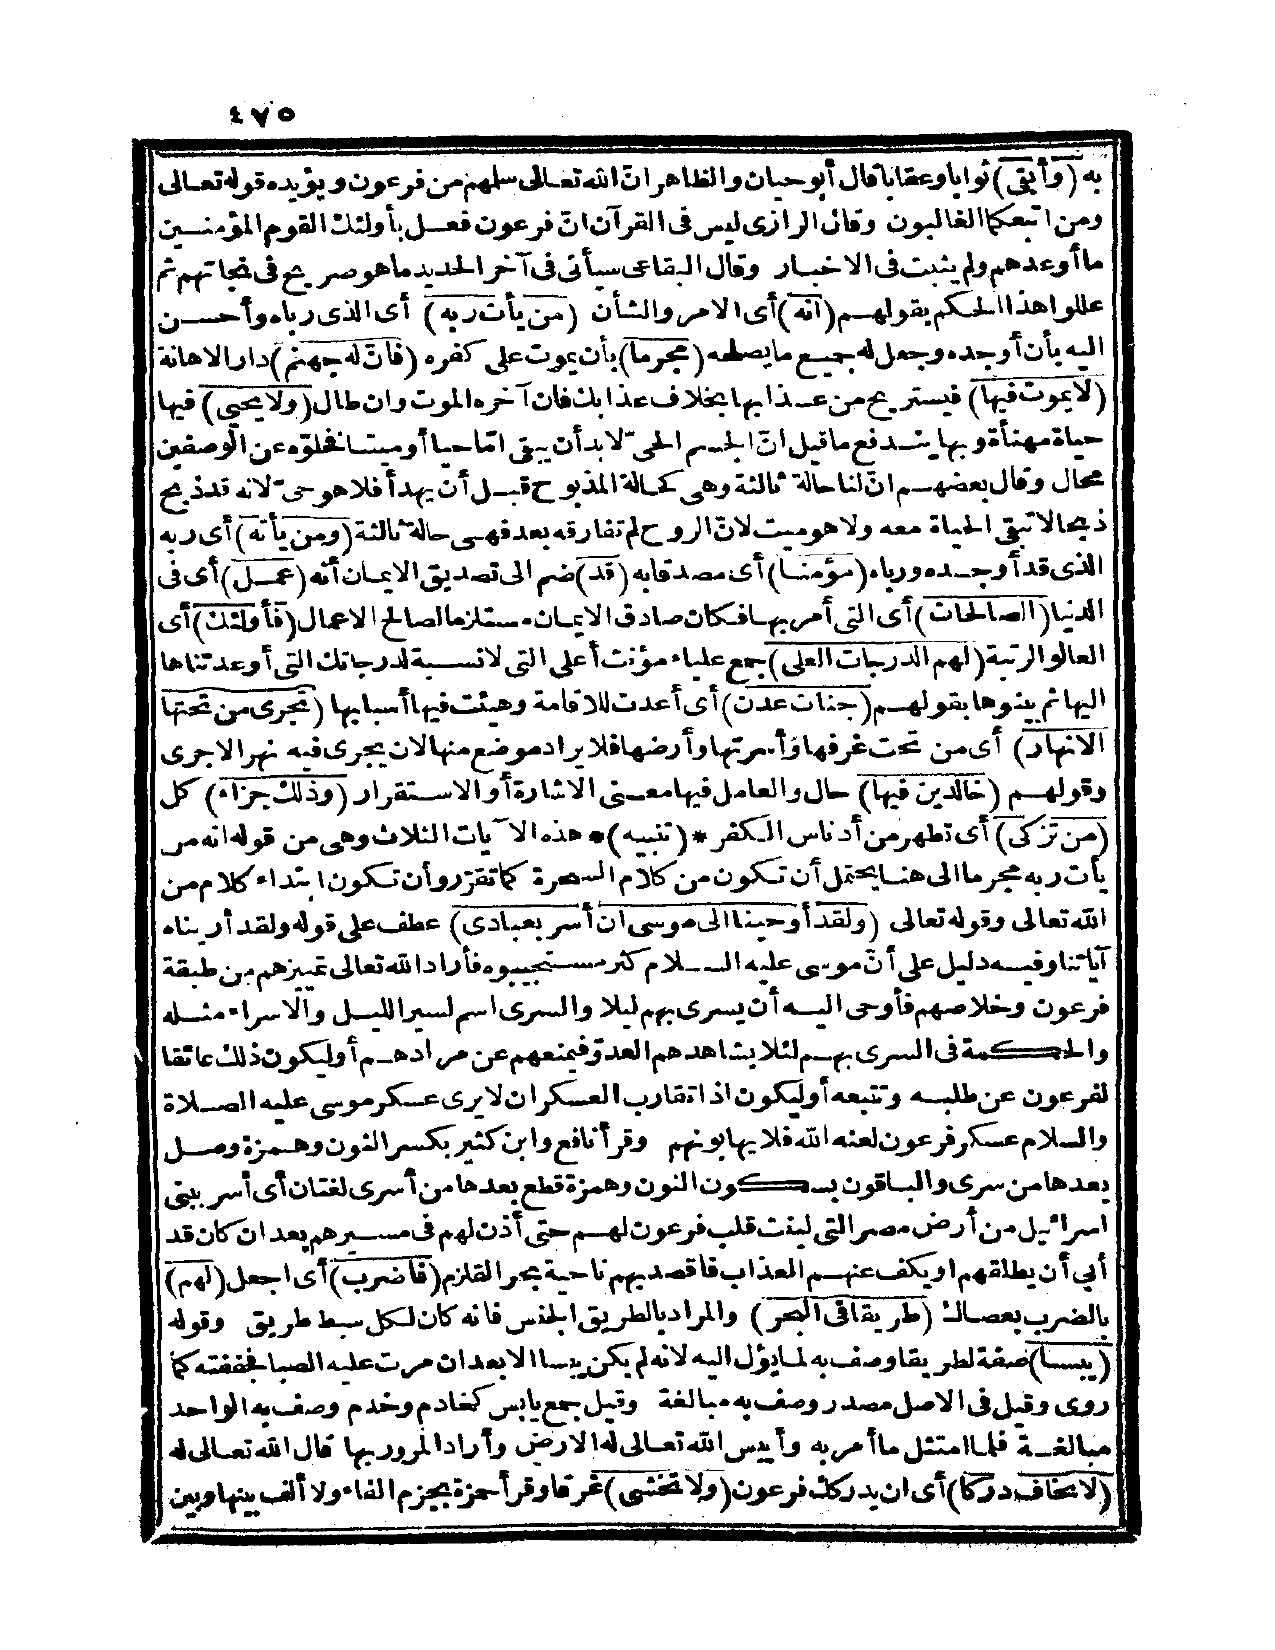 ٤٧٥
به (وأبقى) ثوابا وعقابا قال أبو حيان والظاهر انّ الله تعالى سلهم من فرعون ويؤيده قوله تعالى
ومن اتبعكما الغالبون وقال الرازى ليس فى القرآن انّ فرعون فعل بأولئك القوم المؤمنين
ما أوعدهم ولم يثبت فى الاخبار وقال البقاعى سيأتى فى آخر الحديد ما هو صريح فى نجاتهم ثم
عللوا هذا الحكم بقولهم (انه) أى الامر والشأن (من يأت ربه) أى الذى رباه وأحسن
اليه بأن أوجده وجعل له جميع ما يصلحه (مجرما) بأن يموت على كفره (فانّ له جهنم) دار الاهانة
(لا يموت فيها) فيستريح من عذابها بخلاف عذابك فان آخره الموت وان طال (ولا يحيى) فيها
حياة مهنأة وبها يندفع ما قيل انّ الجسم الحىّ لا بد أن يبقى امّا حيا أو ميتا فخلوّه عن الوصفين
محال وقال بعضهم انّ لنا حالة ثالثة وهى كحالة المذبوح قبل أن يهدأ فلا هو حىّ لانه قد ذبح
ذبحا لا تبقى الحياة معه ولا هو ميت لانّ الروح لم تفارقه بعد فهى حالة ثالثة (ومن يأته) أى ربه
الذى قد أوجده ورباه (مؤمنا) أى مصدقا به (قد) ضم الى تصديق الايمان أنه (عمل) أى فى
الدنيا (الصالحات) أى التى أمر بها فكان صادق الايمان مستلزما لصالح الاعمال (فأولئك) أى
العالو الرتبة (لهم الدرجات العلى) جمع علياء مؤنث أعلى التى لا نسبة لدرجاتك التى أوعدتناها
اليها ثم بينوها بقولهم (جنات عدن) أى أعدت للاقامة وهيئت فيها أسبابها (تجرى من تحتها
الانهار) أى من تحت غرفها وأسرتها وأرضها فلا يراد موضع منها لان يجرى فيه نهر الا جرى
وقولهم (خالدين فيها) حال والعامل فيها معنى الاشارة أو الاستقرار (وذلك جزاء) كل
(من تزكى) أى تطهر من أدناس الكفر * (تنبيه) * هذه الآيات الثلاث وهى من قوله انه من
يأت ربه مجرما الى هنا يحتمل أن تكون من كلام السحرة كما تقرّر وأن تكون ابتداء كلام من
الله تعالى وقوله تعالى (ولقد أوحينا الى موسى ان أسر بعبادى) عطف على قوله ولقد أريناه
آياتنا وفيه دليل على أنّ موسى عليه السلام كثر مستجيبوه فأراد الله تعالى تمييزهم من طبقة
فرعون وخلاصهم فأوحى اليه أن يسرى بهم ليلا والسرى اسم لسير الليل والاسراء مثله
والحكمة فى السرى بهم لئلا يشاهدهم العدوّ فيمنعهم عن مرادهم أو ليكون ذلك عائقا
لفرعون عن طلبه وتتبعه أو ليكون اذا تقارب العسكران لا يرى عسكر موسى عليه الصلاة
والسلام عسكر فرعون لعنه الله فلا يهابونهم وقرأ نافع وابن كثير بكسر النون وهمزة وصل
بعدها من سرى والباقون بسكون النون وهمزة قطع بعدها من أسرى لغتان أى أسر ببنى
اسرائيل من أرض مصر التى لينت قلب فرعون لهم حتى أذن لهم فى مسيرهم بعد ان كان قد
أبى أن يطلقهم او يكف عنهم العذاب فاقصد بهم ناحية بحر القلزم (فاضرب) أى اجعل (لهم)
بالضرب بعصاك (طريقا فى البحر) والمراد بالطريق الجنس فانه كان لكل سبط طريق وقوله
(يبسا) صفة لطريقا وصف به لما يؤل اليه لانه لم يكن يبسا الا بعد ان مرت عليه الصبا فجففته كما
روى وقيل فى الاصل مصدر وصف به مبالغة وقيل جمع يابس كخادم وخدم وصف به الواحد
مبالغة فلما امتثل ما أمر به وأيبس الله تعالى له الارض وأراد المرور بها قال الله تعالى له
(لا تخاف دركا) أى ان يدركك فرعون (ولا تخشى) غرقا وقرأ حمزة بجزم الفاء ولا ألف بينها وبين